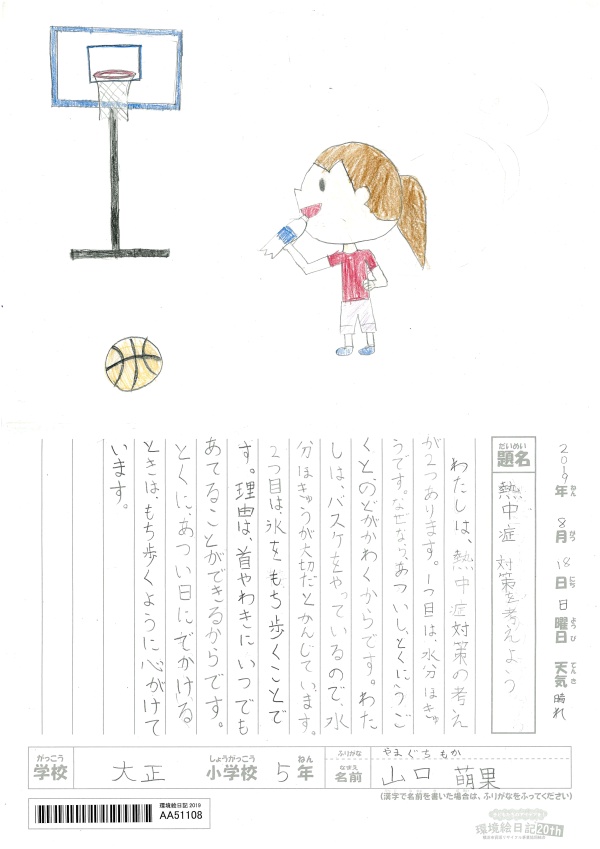 2019年 8月 18日 日曜日 天気 晴れ
ねん がつ にち ようび てんき
だいめい
題名
熱中症 対策を考えよう
わたしは、熱中症対策の考え
が2つあります。1つ目は、水分ほきゅ
うです。なぜなら、あついし、とくにうご
くと、のどがかわくからです。わた
しは、バスケをやっているので、水
分ほきゅうが大切だとかんじています。
2つ目は、氷をもち歩くことで
す。理由は、首やわきに、いつでも
あてることができるからです。
とくに、あつい日に、でかける
ときは、もち歩くように心がけて
います。
がっこう
学校
大正
しょうがっこう
小学校
5
ねん
年
ふりがな
やまぐち もか
なまえ
名前
山口 萌果
(漢字で名前を書いた場合は、ふりがなをふってください)
環境絵日記 2019
AA51108
環境絵日記20th